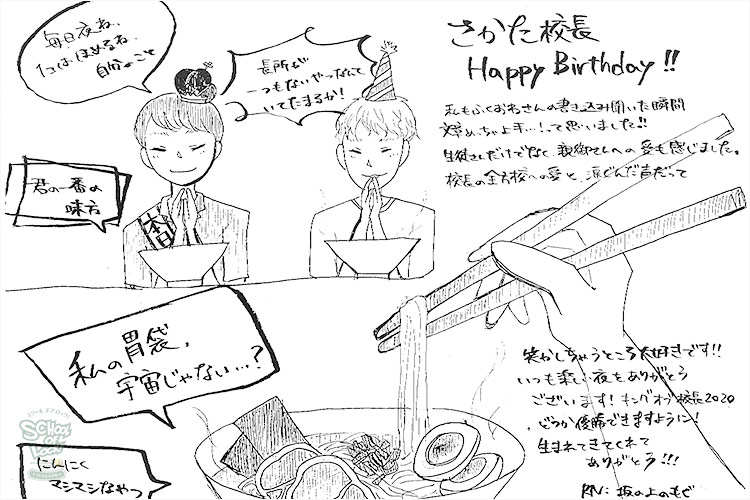 毎日夜ね、
1コはほめるね、
自分のこと
長所が
一つもないやつなんて
いてたまるか!
君の一番の
味方
本日
私の胃袋、
宇宙じゃない…?
にんにく
マシマシなやつ
さかた校長
Happy Birthday!!
私もふくおねさんの書き込み開いた瞬間
文めっちゃ上手…!って思いました!!
生徒さんだけでなく、親御さんへの愛も感じました。
校長の全方校への愛と、涙ぐんだ声だって
笑かしちゃうところ大好きです!!
いつも楽しい夜をありがとう
ございます!キングオブ校長2020
、どうか優勝できますように!
生まれてきてくれて
ありがとう!!!
RN:坂の上のもぐ
SCHOOL OF LOCK!